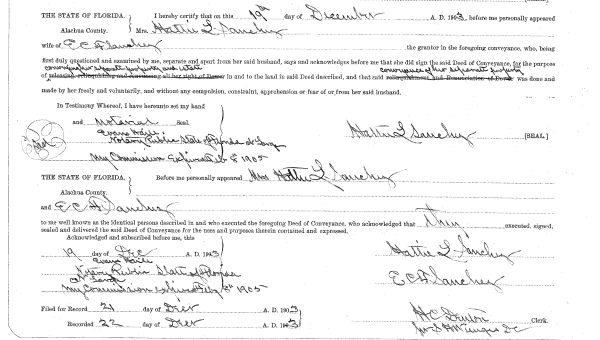 THE STATE OF FLORIDA, I hereby certify that on this 19th day of December A. D. 1903, before me personally appeared
Alachua County. Mrs. Hattie L Sanchez
wife of E C H Sanchez the grantor in the foregoing conveyance, who, being
first duly questioned and examined by me, separate and apart from her said husband, says and acknowledges before me that she did sign the said Deed of Conveyance, for the purpose
conveying her separate property and estate conveyance of her separate property
of in and to the land in said Deed described, and that said was done and
made by her freely and voluntarily, and without any compulsion, constraint, apprehension or fear of or from her said husband.
In Testimony Whereof, I have hereunto set my hand
and Notarial Seal
Evans Haile
Notary Public State of Florida at Large
My Commission Expires Feb 1905
Hattie L Sanchez [SEAL]
Seal
THE STATE OF FLORIDA, Before me personally appeared Mrs Hattie L Sanchez
Alachua County.
and E C H Sanchez
to me well known as the identical persons described in and who executed the foregoing Deed of Conveyance, who acknowledged that they executed, signed,
sealed and delivered the said Deed of Conveyance for the uses and purposes therein contained and expressed.
Acknowledged and subscribed before me, this
19 day of Dec A. D. 1903
Evans Haile
Notary Public State of Florida
at Large
My Commission expires Feb 1905
Hattie L Sanchez
E C H Sanchez
Filed for Record 21 day of Dec A. D. 1903
Recorded 22 day of Dec A. D. 1903
H C Denton Clerk.